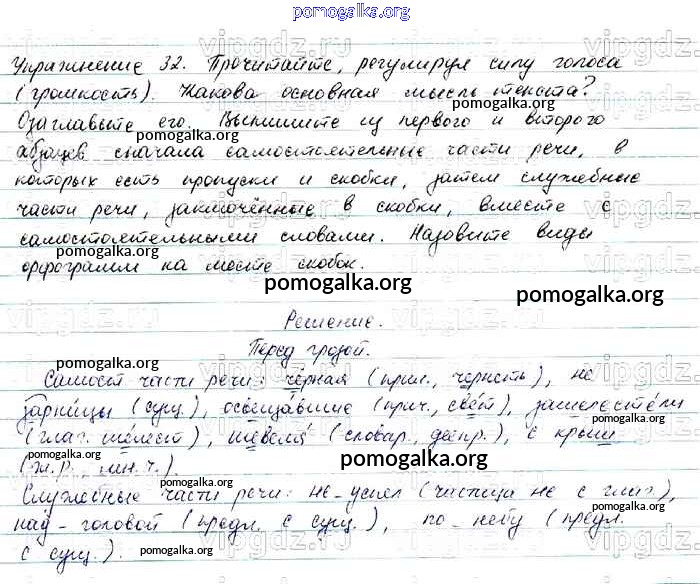 pomogalka.org
Упражнение 32. Прочитайте, регулируя силу голоса
(громкость). Какова основная мысль текста?
Озаглавьте его. Выпишите из первого и второго
абзацев сначала самостоятельные части речи, в
которых есть пропуски и скобки, затем служебные
части речи, заключённые в скобки, вместе с
самостоятельными словами. Назовите виды
орфограмм на месте скобок.
Решение.
Перед грозой.
Самост. части речи: чёрная (прил., чернеть), не
зарницы (сущ.), освещавшие (прич., свет), зашелестели
(глаг. шелест), шевеля (словар., деепр.), с крыш
(ж.р., мн.ч.).
Служебные части речи: не_успел (частица не с глаг.),
над_головой (предл. с сущ.), по_небу (предл.
с сущ.).